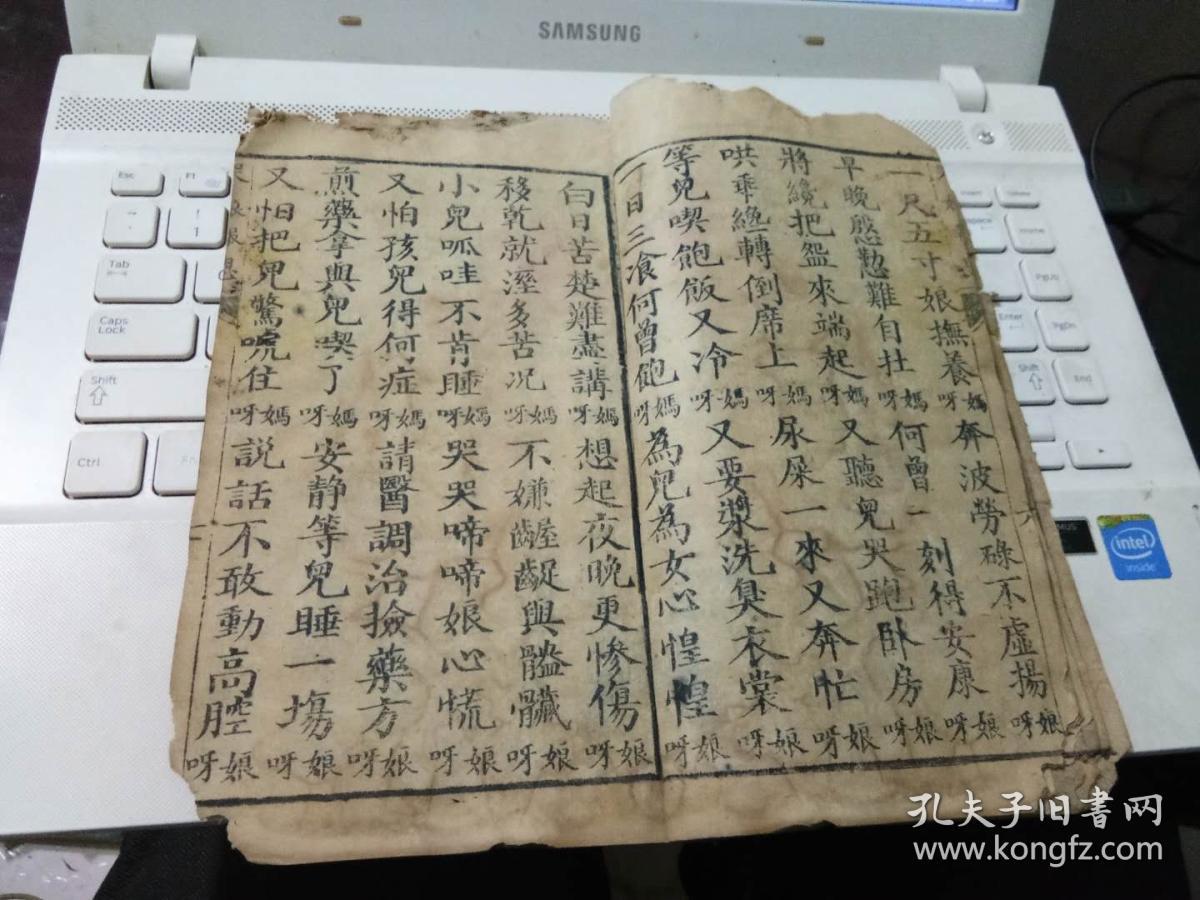 SAMSUNG
一尺五寸娘撫養呀媽奔波勞碌不虛揚呀娘
早晚慇懃難自壯呀媽何曾一刻得安康呀娘
將纔把盌來端起呀媽又聽兒哭跑臥房呀娘
哄乖纔轉倒席上呀媽尿屎一來又奔忙呀娘
等兒喫飽飯又冷呀媽又要漿洗臭衣裳呀娘
一日三飡何曾飽呀媽為兒為女心惶惶呀娘
白日苦楚難盡講呀媽想起夜晚更慘傷呀娘
移乾就溼多苦况呀媽不嫌齷齪與髒呀娘
小兒呱哇不肯睡呀媽哭哭啼啼娘心慌呀娘
又怕孩兒得何症呀媽請醫調治撿藥方呀娘
煎藥拿與兒喫了呀媽安靜等兒睡一塲呀娘
又怕把兒驚唬住呀媽說話不敢動高腔呀娘
Esc
F1
Tab
Caps Lock
Shift
Ctrl
Enter
PgUp
PgDn
Shift
End
intel inside
孔夫子旧書网
www.kongfz.com